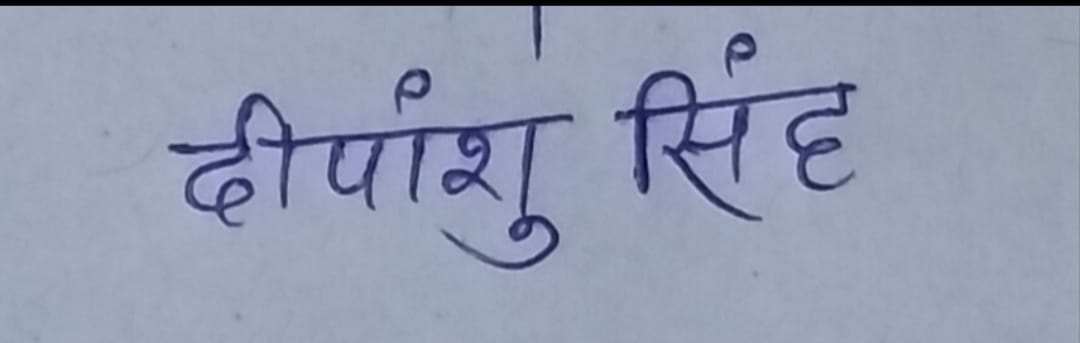 दीपांशु सिंह